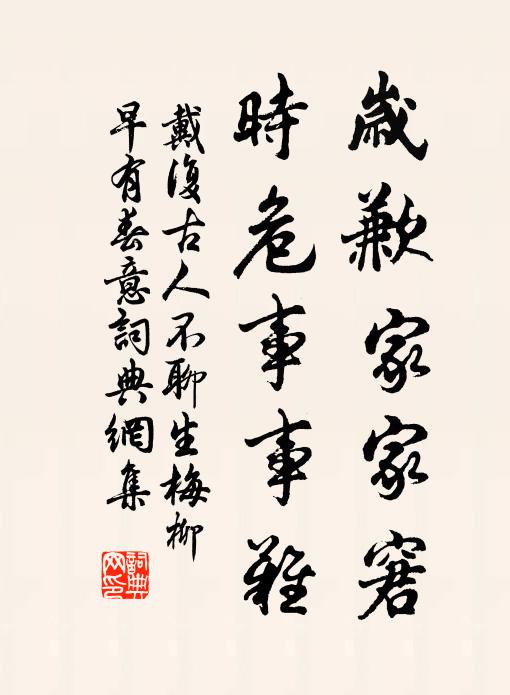 歲歉家家窘
時危事事難
戴復古人不聊生梅柳
早有春意詞典網集
詞典